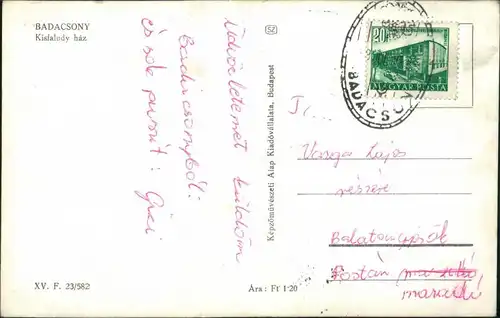 BADACSONY
Kisfaludy ház
Üdvözletemet küldöm
Badacsonyból:
és sok puszit: Gizi
Képzőművészeti Alap Kiadóvállalata, Budapest
XV. F. 23/582
Ára: Ft 1·20
20
MAGYAR POSTA
BADACSONY
T.
Varga Lajos
részére
Balaton
Postán
maradó